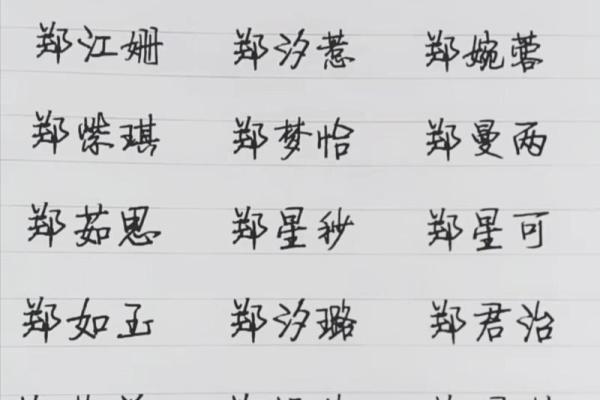 郑江姗 郑汐惹 郑婉蓉
郑紫琪 郑梦怡 郑曼两
郑茹思 郑星秒 郑星可
郑如玉 郑汐璐 郑君治